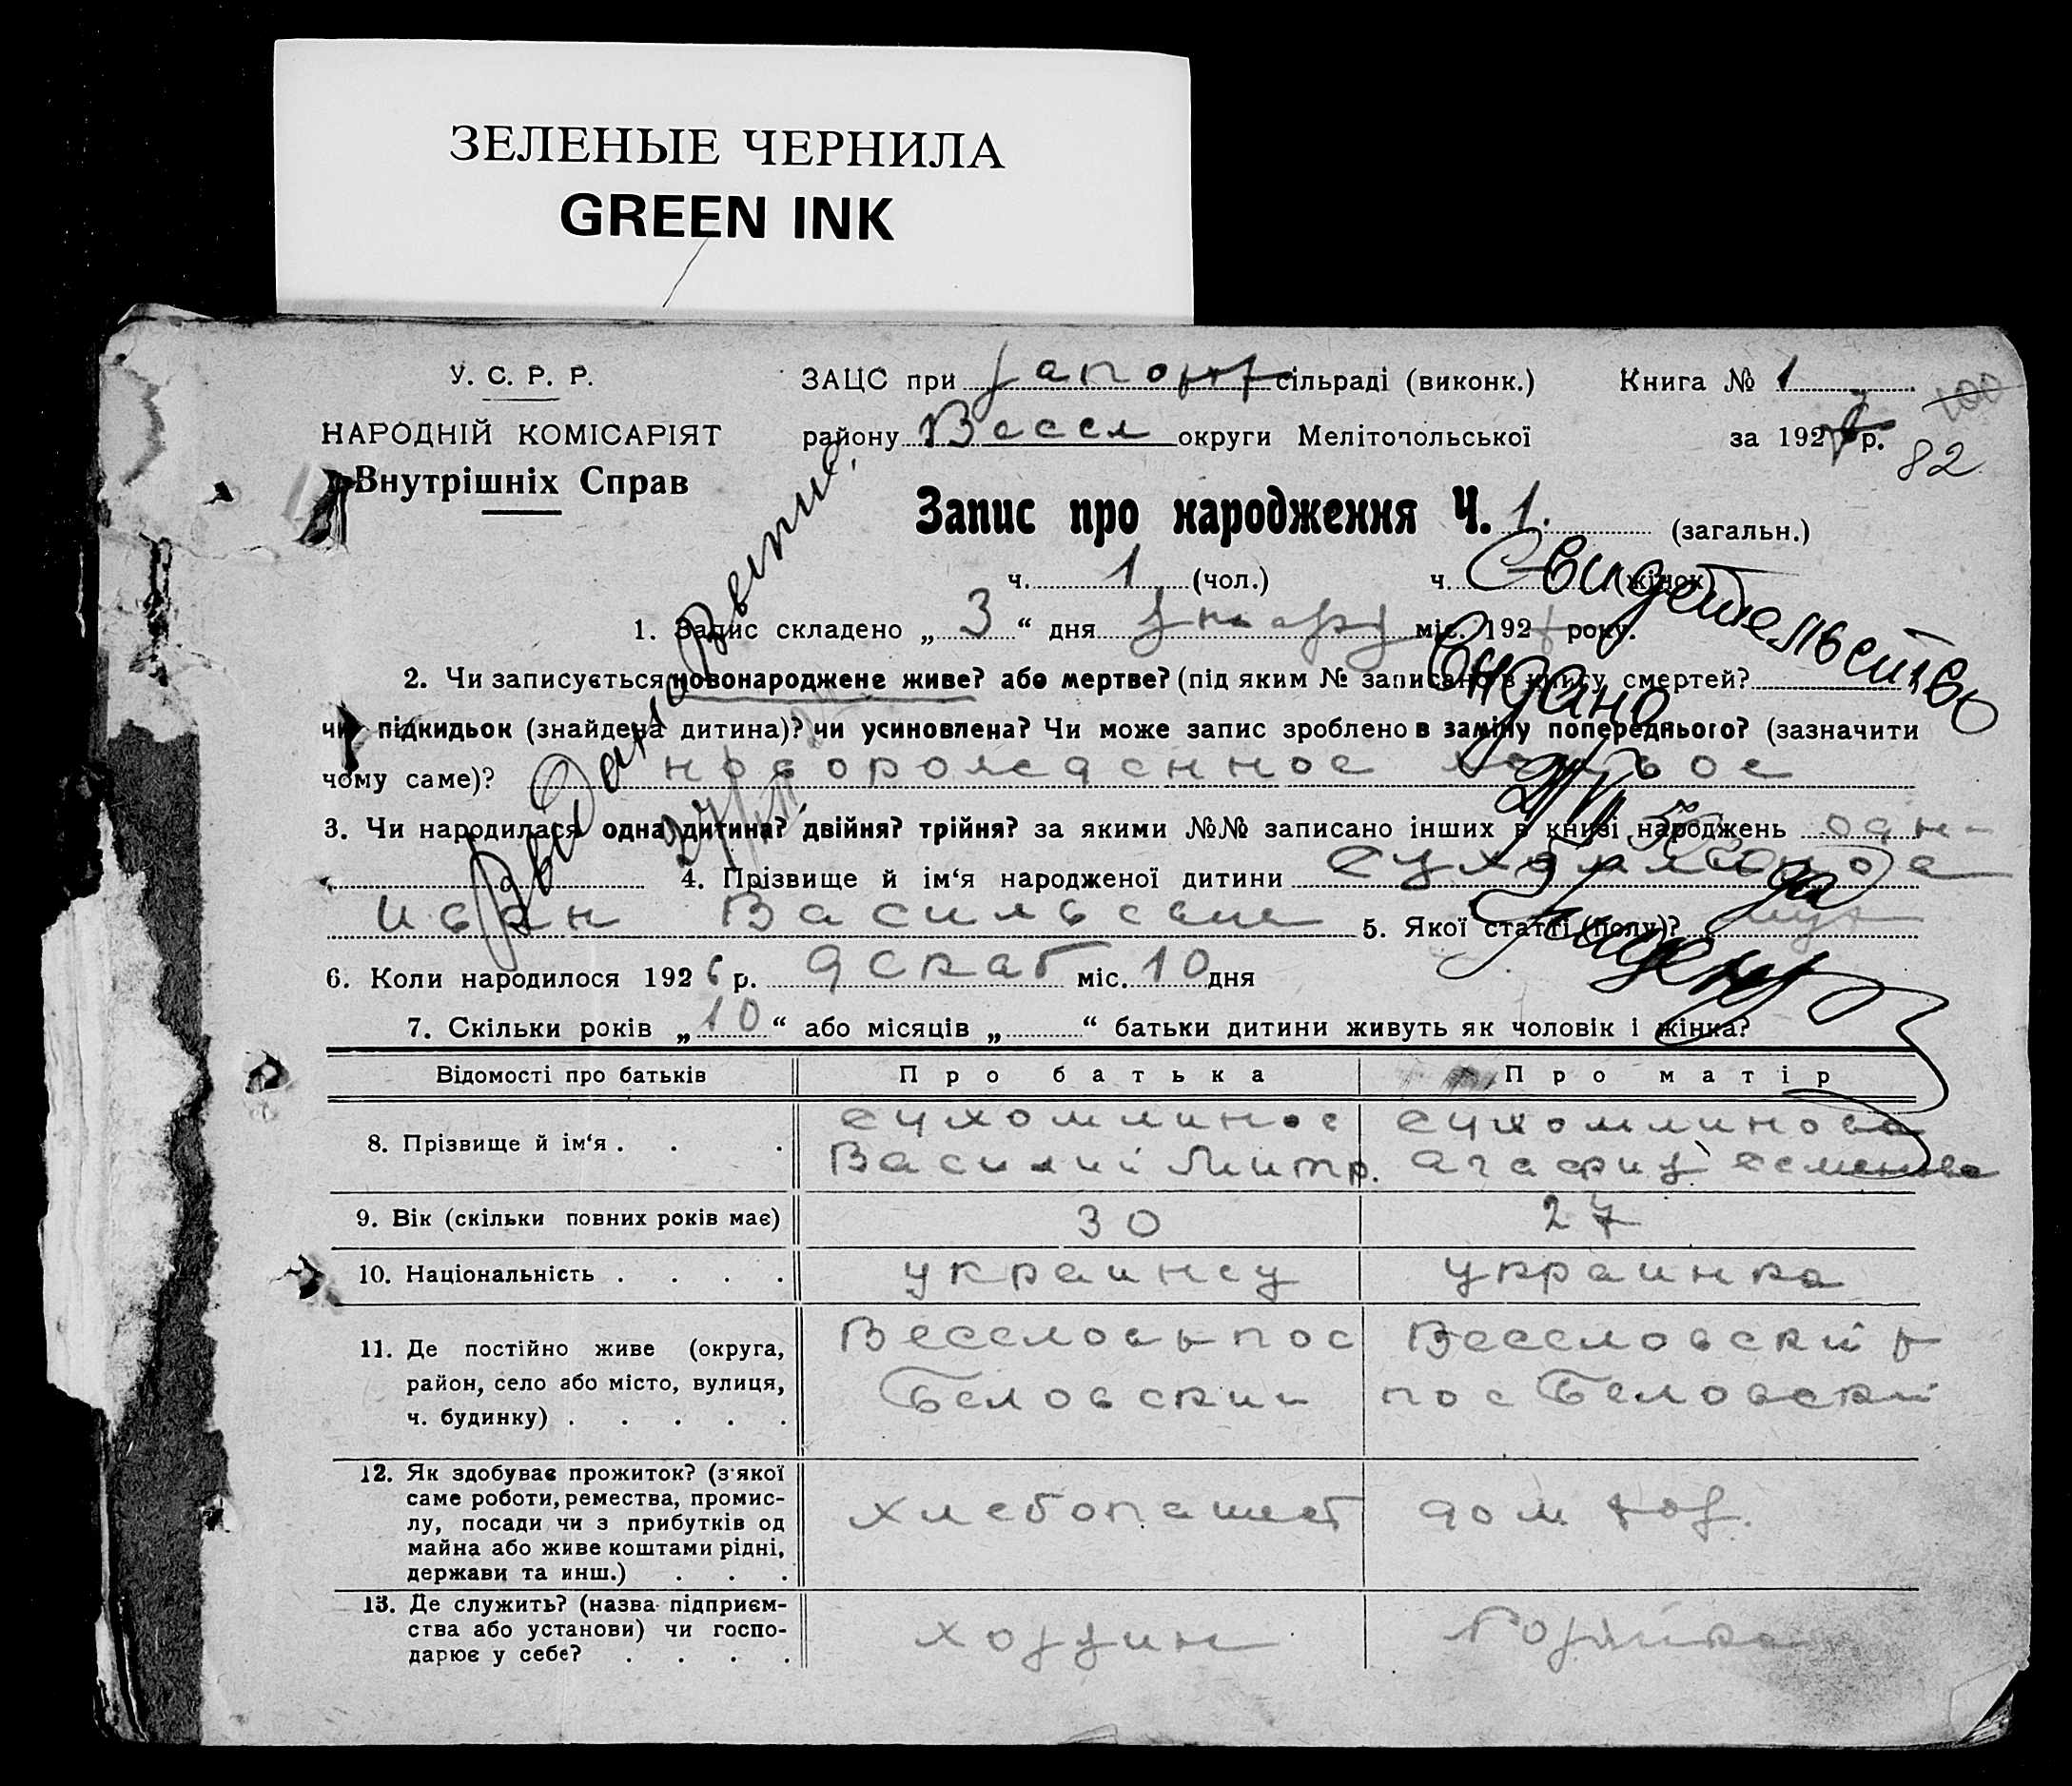 ЗЕЛЕНЫЕ ЧЕРНИЛА
GREEN INK
У. С. Р. Р.
НАРОДНІЙ КОМІСАРІЯТ
Внутрішніх Справ
ЗАЦС при сільраді (виконк.)
Книга № 1
100
району Весел округи Мелітопольської
за 192 р.
82
Запис про народження Ч. 1. (загальн.)
ч. 1 (чол.) ч. (жіноч
Свидетельство
выдано
1. Запис складено „ 3 “ дня января міс. 192 року.
2. Чи записується новонароджене живе? або мертве? (під яким № записано в книгу смертей?
чи підкидьок (знайдена дитина)? чи усиновлена? Чи може запис зроблено в заміну попереднього? (зазначити
чому саме)? новорожденное
3. Чи народилася одна дитина? двійня? трійня? за якими №№ записано інших в книзі народжень
4. Прізвище й ім‘я народженої дитини
Иван Васильевич 5. Якої статті (полу)? муж
6. Коли народилося 1926 р. декаб міс. 10 дня
7. Скільки років „ 10 “ або місяців „ “ батьки дитини живуть як чоловік і жінка?
Відомості про батьків Про батька Про матір
8. Прізвище й ім‘я . . . Сухомлинов Сухомлинова
Василий Митр. Агафия Семенова
9. Вік (скільки повних років має) 30 27
10. Національність . . . . украинец украинка
11. Де постійно живе (округа,
район, село або місто, вулиця,
ч. будинку) . . . . .
пос Веселовский р
Беловский пос Беловский
12. Як здобуває прожиток? (з якої
саме роботи, ремества, промис-
лу, посади чи з прибутків од
майна або живе коштами рідні,
держави та инш.) . . .
хлебопашест дом хоз.
13. Де служить? (назва підприєм-
ства або установи) чи госпо-
дарює у себе? . . . .
хозяин хозяйка